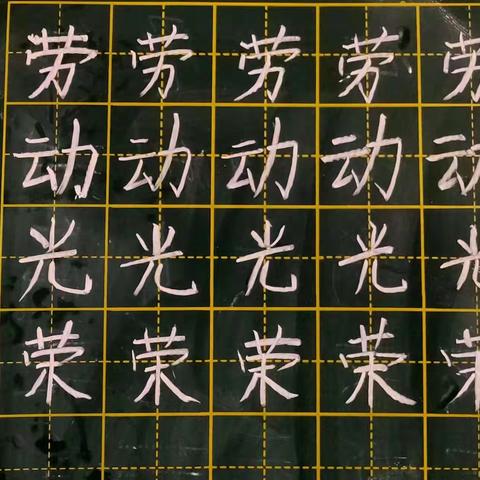 劳劳劳劳劳
动动动动动
光光光光光
荣荣荣荣荣